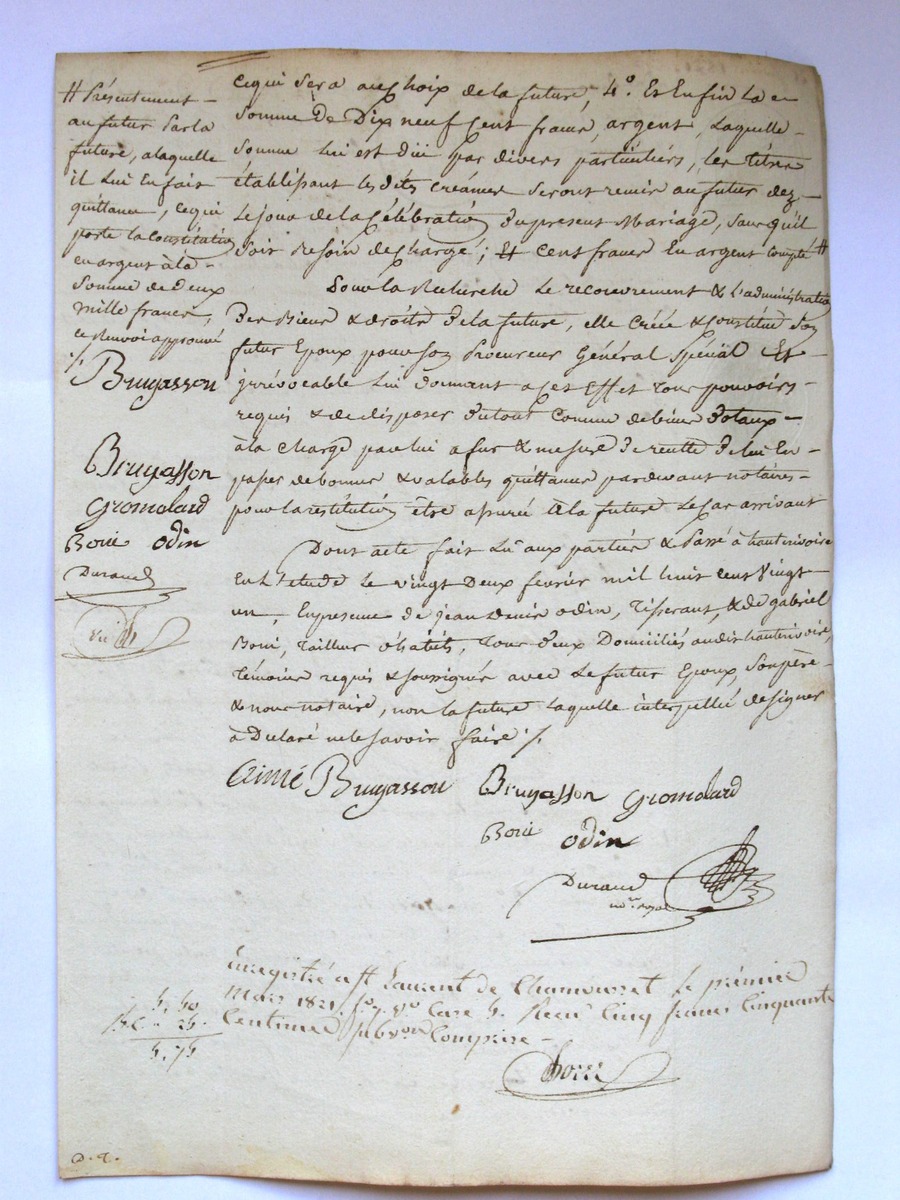 ce qui sera au choix de la future, 4.° Et Enfin la
Somme de Dix neuf Cent francs, argent, Laquelle
Somme lui est düe par divers particuliers, les titres
établissant les dites Créances seront remis au futur dez
le jour de la Célébration du present Mariage, sans qu'il
soit besoin de charge; Et cent francs En argent compté #
Pour la Recherche le recouvrement & l'administration
Des Biens & droits de la future, elle Créée & constitue son
futur Epoux pour son Procureur Général Spécial Et
irrévocable lui donnant a cet Effet tous pouvoirs
requis & de disposer du tout Comme de biens dotaux
à la charge par lui a fur & mesure de recette de lui En
passer de bonnes & valables quittances pardevant notaires
pour la restitution être assurée à la future le Cas arrivant
Dont acte fait Lu aux parties & Passé à hauterivoire
En L'étude Le vingt Deux fevrier mil huit cent Vingt
un, En presence de jean denis odin, Tisserant, & de gabriel
Boni, Tailleur d'habits, Tous deux Domiciliés audit hauterivoire,
Témoins requis & soussignés avec Le futur Epoux, Son père
& nous notaire, non la future Laquelle interpellée de signer
à Déclaré ne le savoir faire ./.
Aimé Brugasson Brugasson Gromolard
Boni odin
Durand
no.re royal
# Présentement
au futur Par la
future, a laquelle
il Lui En fait
quittance, Ce qui
porte la Constitution
en argent à la
Somme de deux
mille francs,
ce Renvoi approuvé
./.
Brugasson
Brugasson
Gromolard
Boni odin
Durand
Enregistré a St Laurent de Chamousset Le premier
Mars 1821. f.° 7. v.° Case 5. Reçu Cinq francs Cinquante
Centimes Subv.on Comprise
5, 50
25
5, 75